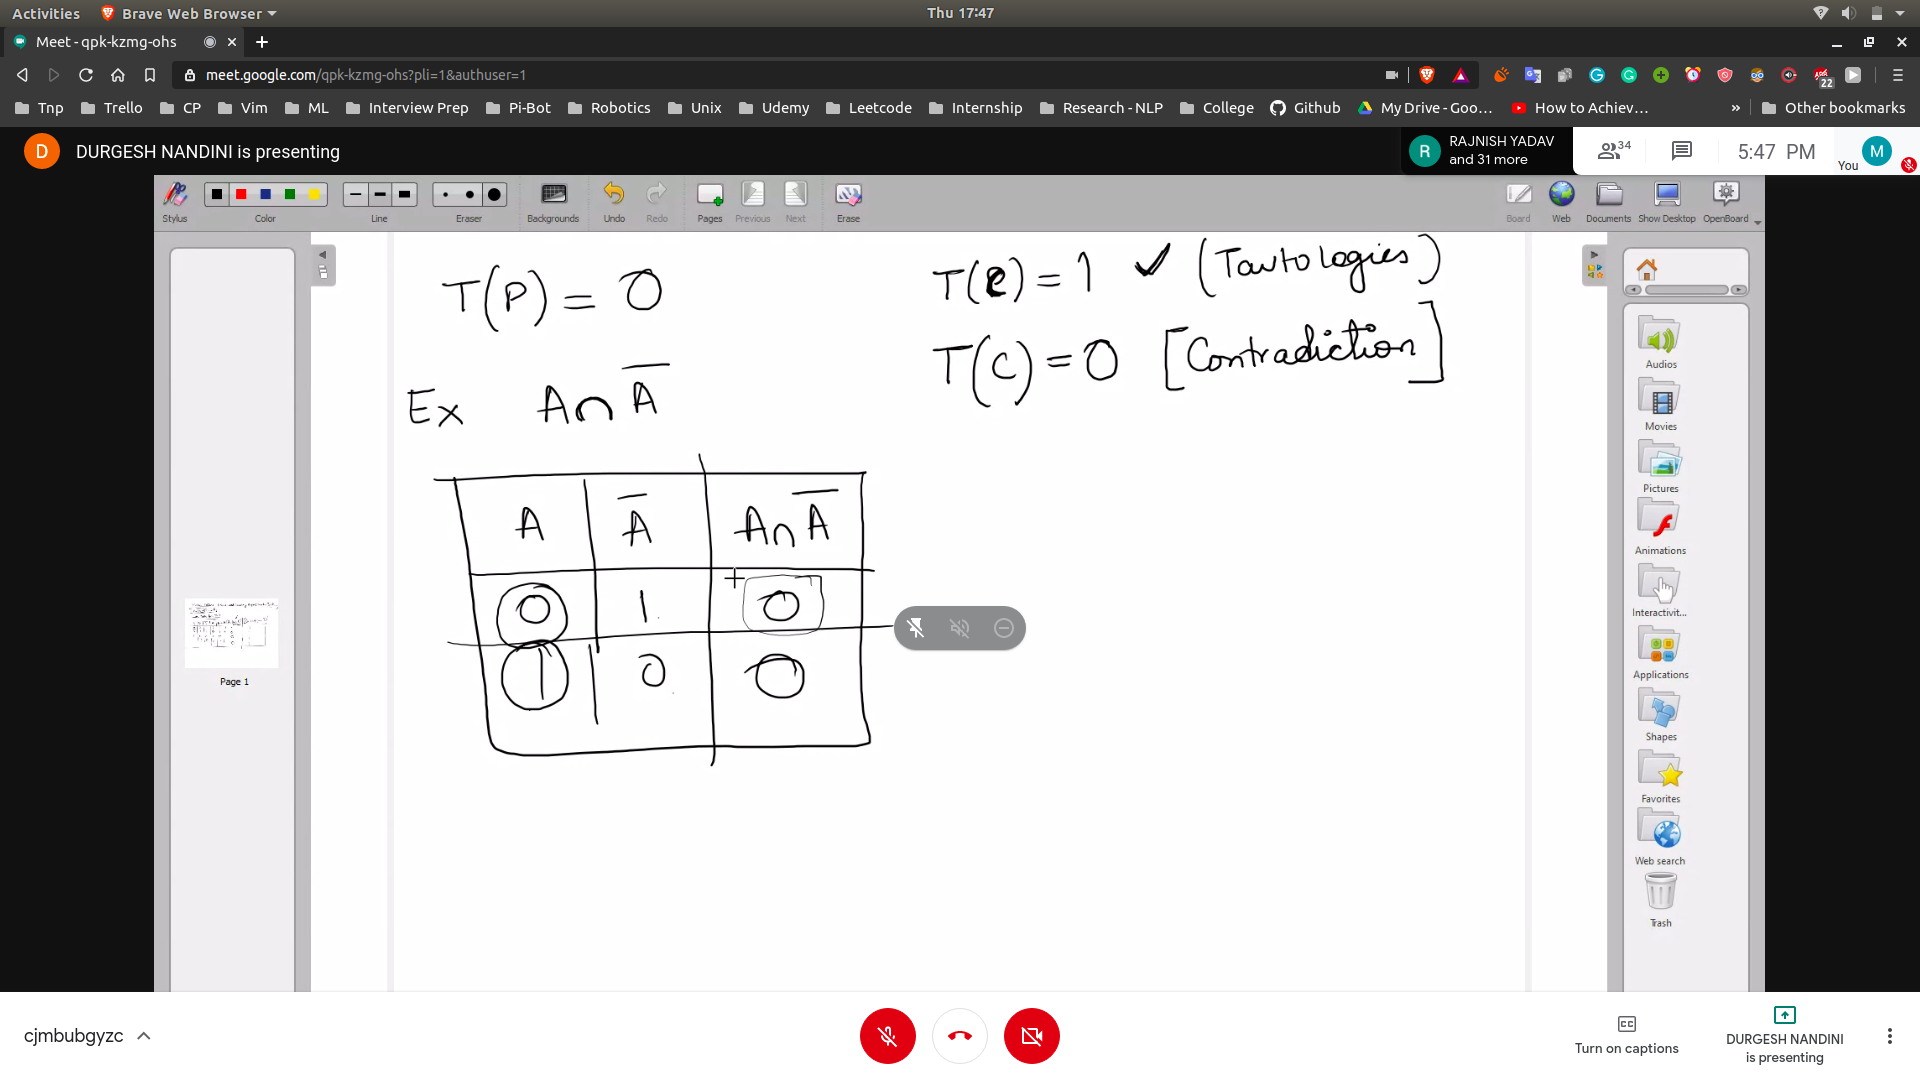 Activities Brave Web Browser Thu 17:47
Meet - qpk-kzmg-ohs
meet.google.com/qpk-kzmg-ohs?pli=1&authuser=1 22
Tnp Trello CP Vim ML Interview Prep Pi-Bot Robotics Unix Udemy Leetcode Internship Research - NLP College Github My Drive - Goo... How to Achiev... » Other bookmarks
D DURGESH NANDINI is presenting
R RAJNISH YADAV
and 31 more
34 5:47 PM You M
Stylus Color Line Eraser Backgrounds Undo Redo Pages Previous Next Erase Board Web Documents Show Desktop OpenBoard
T(P) = 0
T(C) = 1 ✓ (Tautologies)
T(C) = 0 [Contradiction]
Ex A∩A̅
A A̅ A∩A̅
0 1 0
1 0 0
Page 1
Audios
Movies
Pictures
Animations
Interactivit...
Applications
Shapes
Favorites
Web search
Trash
cjmbubgyzc
Turn on captions
DURGESH NANDINI
is presenting